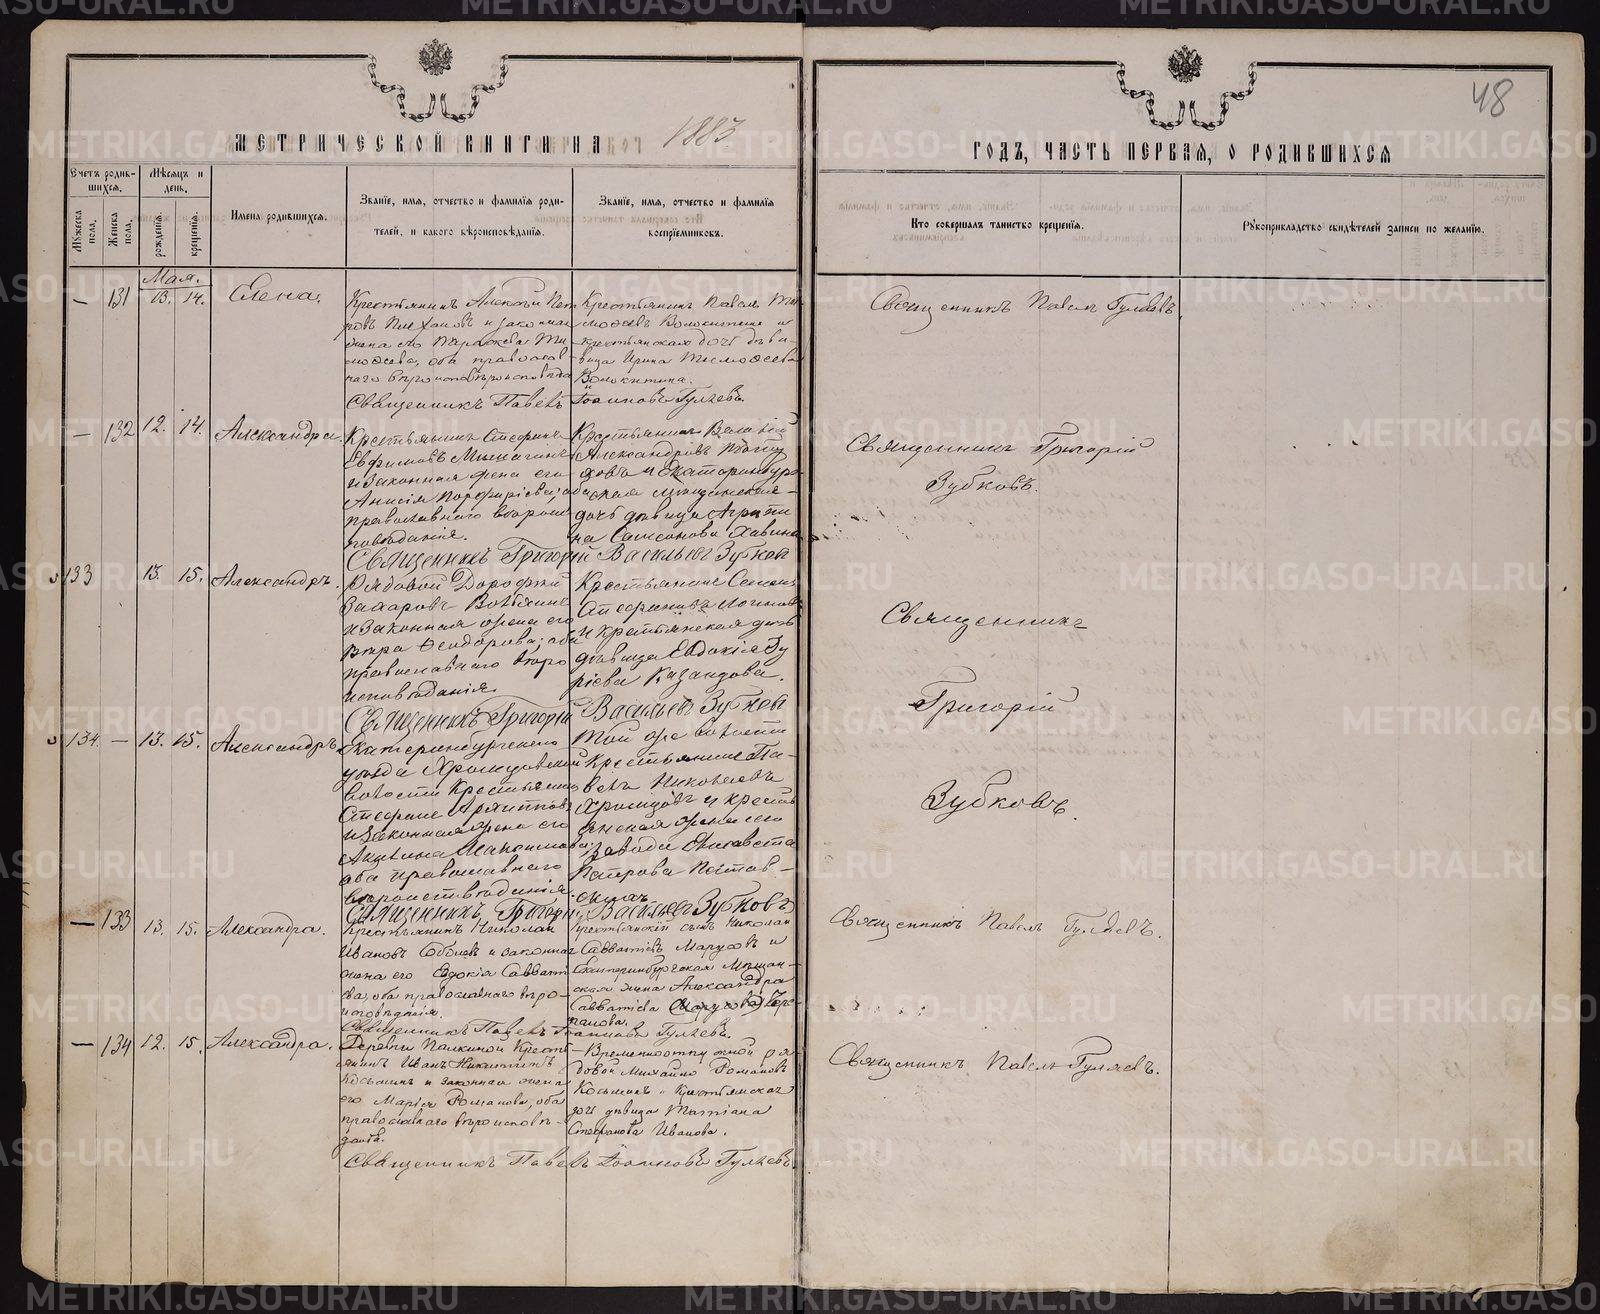 МЕТРИЧЕСКОЙ КНИГИ НА 1883
ГОДЪ, ЧАСТЬ ПЕРВАЯ, О РОДИВШИХСЯ
48
Счетъ родив-
шихся.
Мѣсяцъ и
день.
Мужеска
пола.
Женска
пола.
рожденія.
крещенія.
Имена родившихся.
Званіе, имя, отчество и фамилія роди-
телей, и какого вѣроисповѣданія.
Званіе, имя, отчество и фамилія
воспріемниковъ.
Кто совершалъ таинство крещенія.
Рукоприкладство свидѣтелей записи по желанію.
Мая.
— 131 13. 14. Елена.
Крестьянинъ Алексѣй Пет
ровъ Плехановъ и законная
жена его Параскева Ти
моѳеева, оба православ-
наго
Крестьянинъ Павелъ Ти
моѳеевъ Волокитинъ и
крестьянская дочь дѣви-
вица Ирина Тимоѳеева
Волокитина.
Священникъ Павелъ Іоанновъ Гуляевъ
Священникъ Павелъ Гуляевъ.
— 132 12. 14. Александра.
Крестьянинъ Стефанъ
Ефимовъ
и законная жена его
Анисія Порфиріева; оба
православнаго вѣроис
повѣданія.
Крестьянинъ Василій
Александровъ
и Екатеринбург
ская мѣщанская
дочь дѣвица Агрипи
на Самсонова
Священникъ Григорій Васильевъ Зубковъ
Священникъ Григорій
Зубковъ.
133 13. 15. Александръ.
Рядовой Дорофей
Захаровъ
и законная жена его
Вѣра Ѳеодорова; оба
православнаго вѣро
исповѣданія.
Крестьянинъ Семенъ
Стефановъ
и крестьянская дочь
дѣвица Евдокія Гу
ріева Казанцова.
Священникъ Григорій Васильевъ Зубковъ
Священникъ
Григорій
Зубковъ.
134 — 13. 15. Александръ
Екатеринбургскаго
уѣзда Хромцовской
волости Крестьянинъ
Стефанъ Архиповъ
и законная жена его
Акилина Максимова;
оба православнаго
вѣроисповѣданія.
Той же волости
Крестьянинъ Па-
велъ Николаевъ
Хромцовъ и кресть
янская жена сего
завода Елисавета
Петрова
Священникъ Григорій Васильевъ Зубковъ
— 133 13. 15. Александра.
Крестьянинъ Николай
Ивановъ Соболевъ и законная
жена его Евдокія Саввати
ева, оба православнаго вѣро-
исповѣданія.
Крестьянскій сынъ Николай
Савватіевъ Марусовъ и
Екатеринбургская Мѣщан-
ская жена Александра
Савватіева (Марусова) Чере
панова.
Священникъ Павелъ Іоанновъ Гуляевъ.
Священникъ Павелъ Гуляевъ.
— 134 12. 15. Александра.
Деревни Палкиной Кресть
янинъ Иванъ Никитинъ
Косьминъ и законная жена
его Марія Романова, оба
православнаго вѣроисповѣ-
данія.
Временноотпускной ря
довой Михайло Романовъ
Косьминъ и Крестьянская
дочь дѣвица Татіана
Стефанова Иванова.
Священникъ Павелъ Іоанновъ Гуляевъ
Священникъ Павелъ Гуляевъ.
METRIKI.GASO-URAL.RU